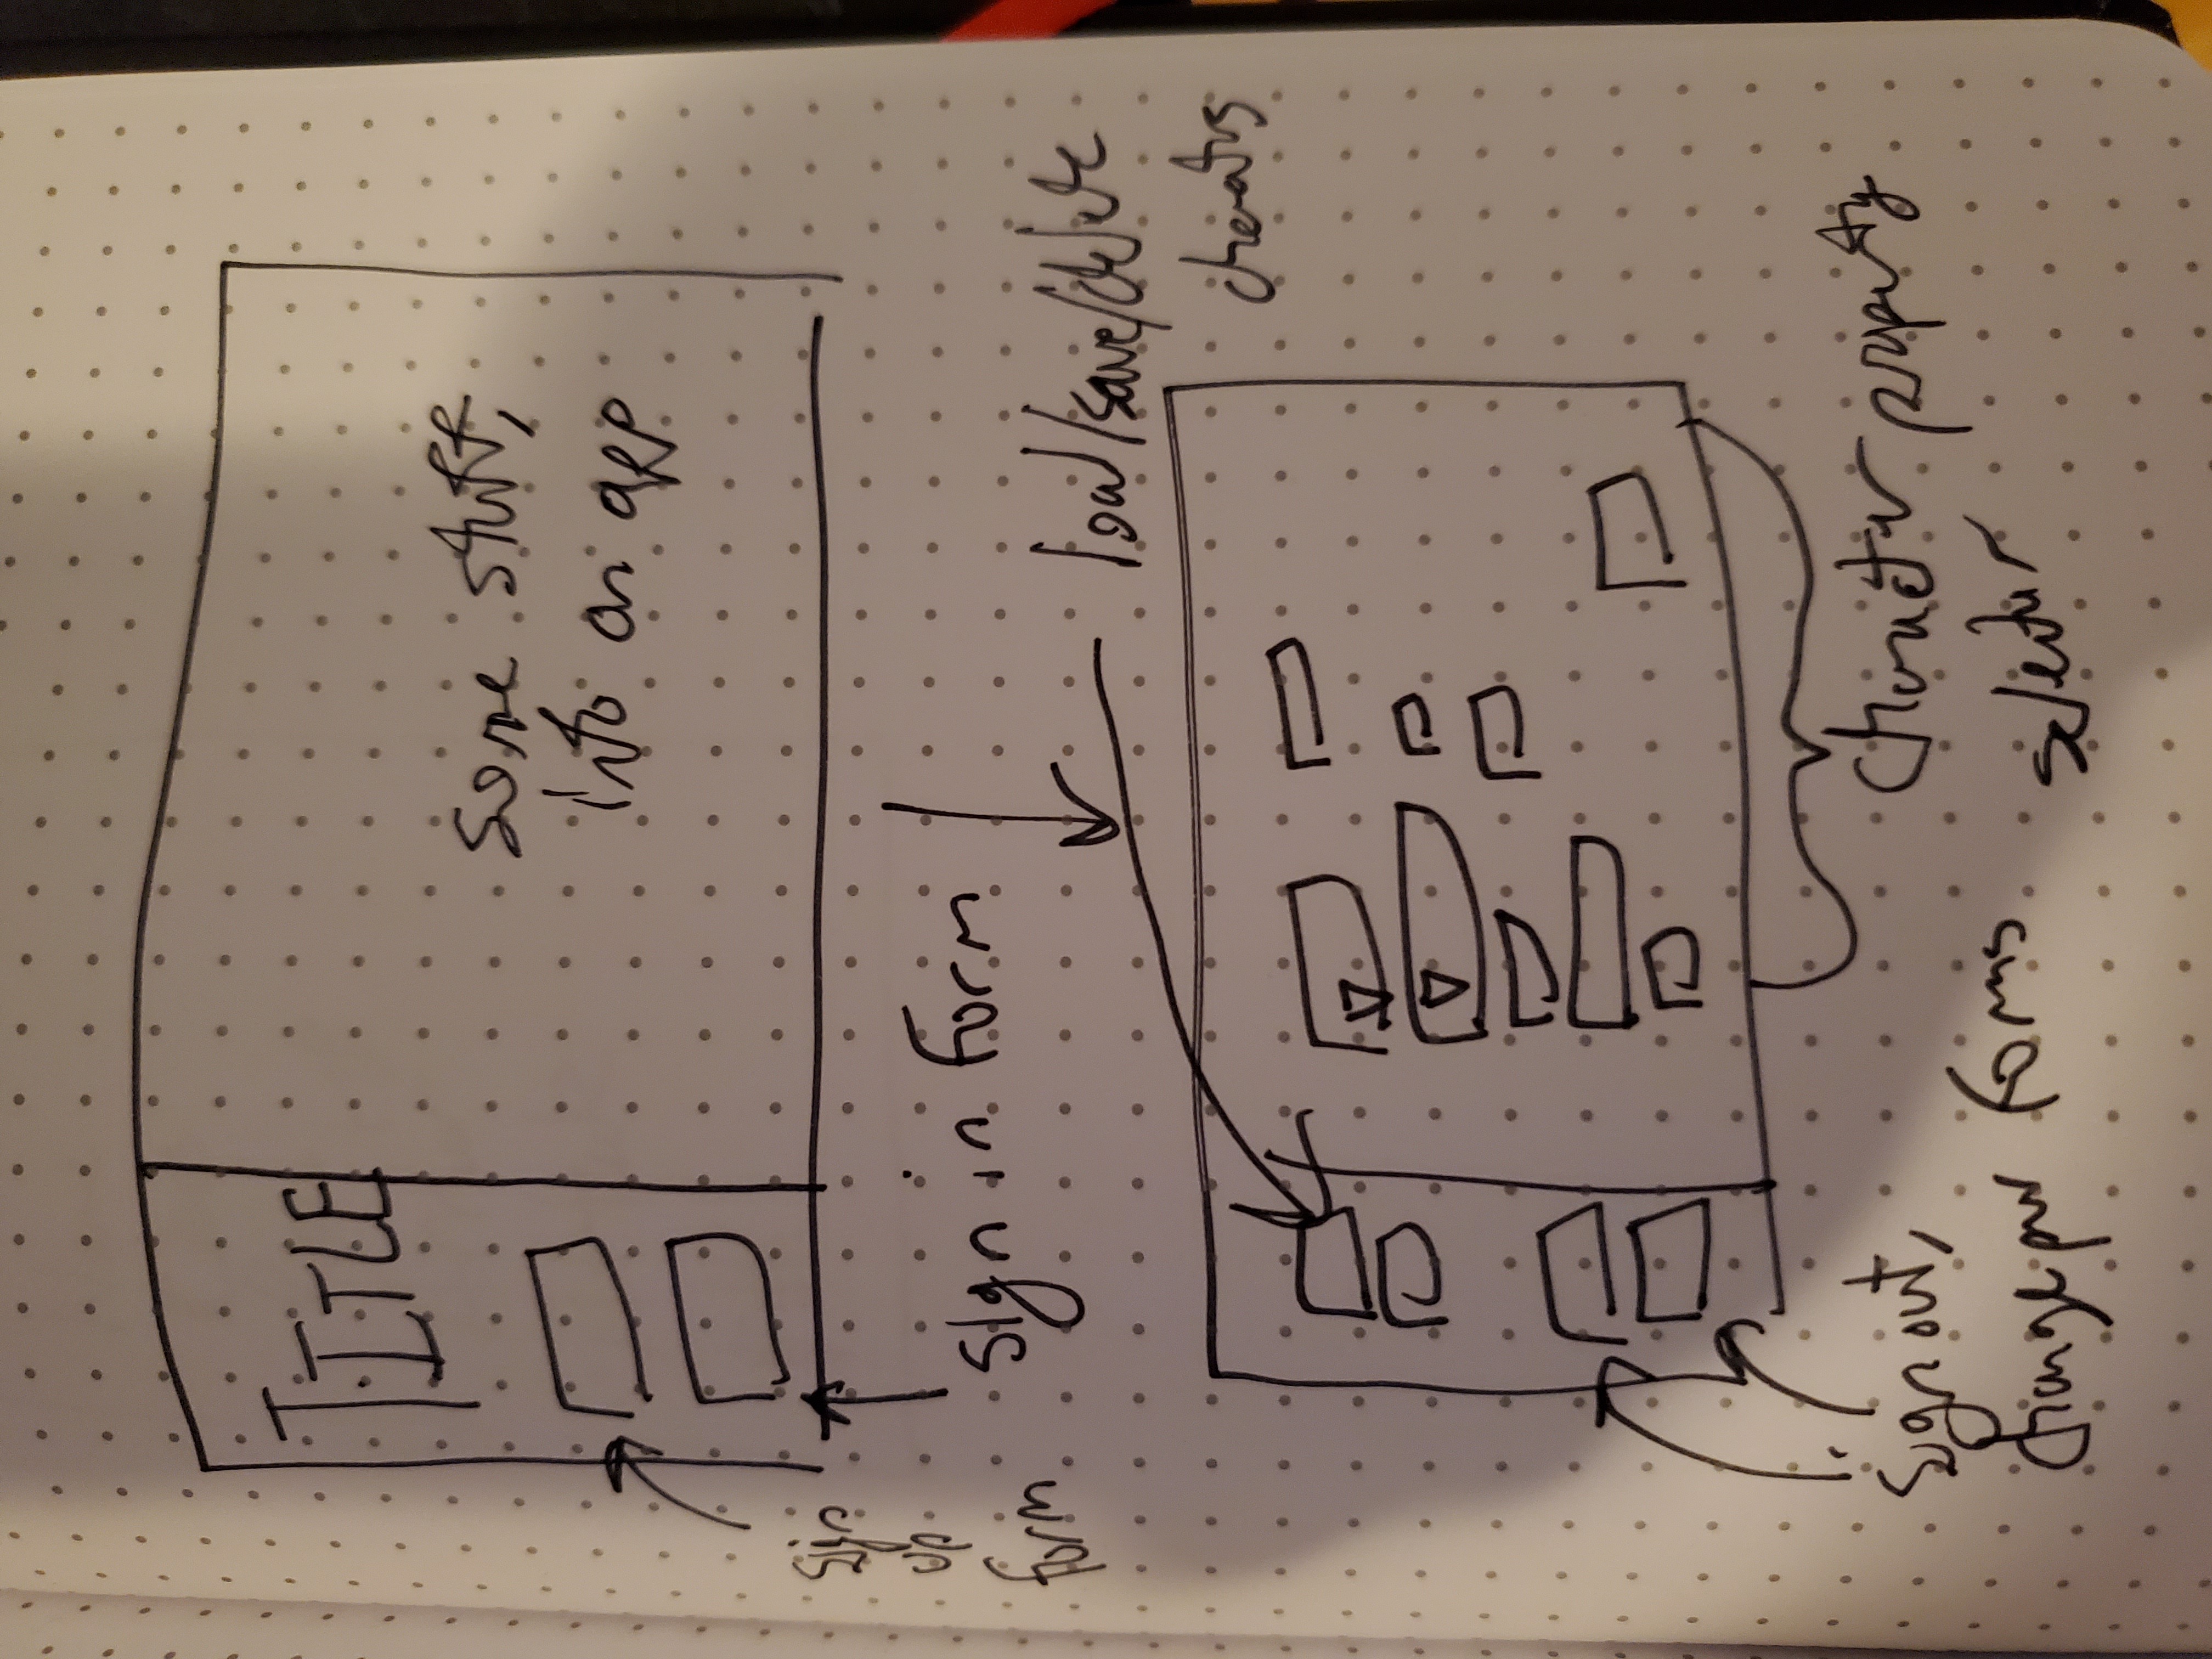 TITLE
some stuff,
info on app
sign
up
form
sign in form
load/save/delete
Sign out,
change pw forms
character property
selector